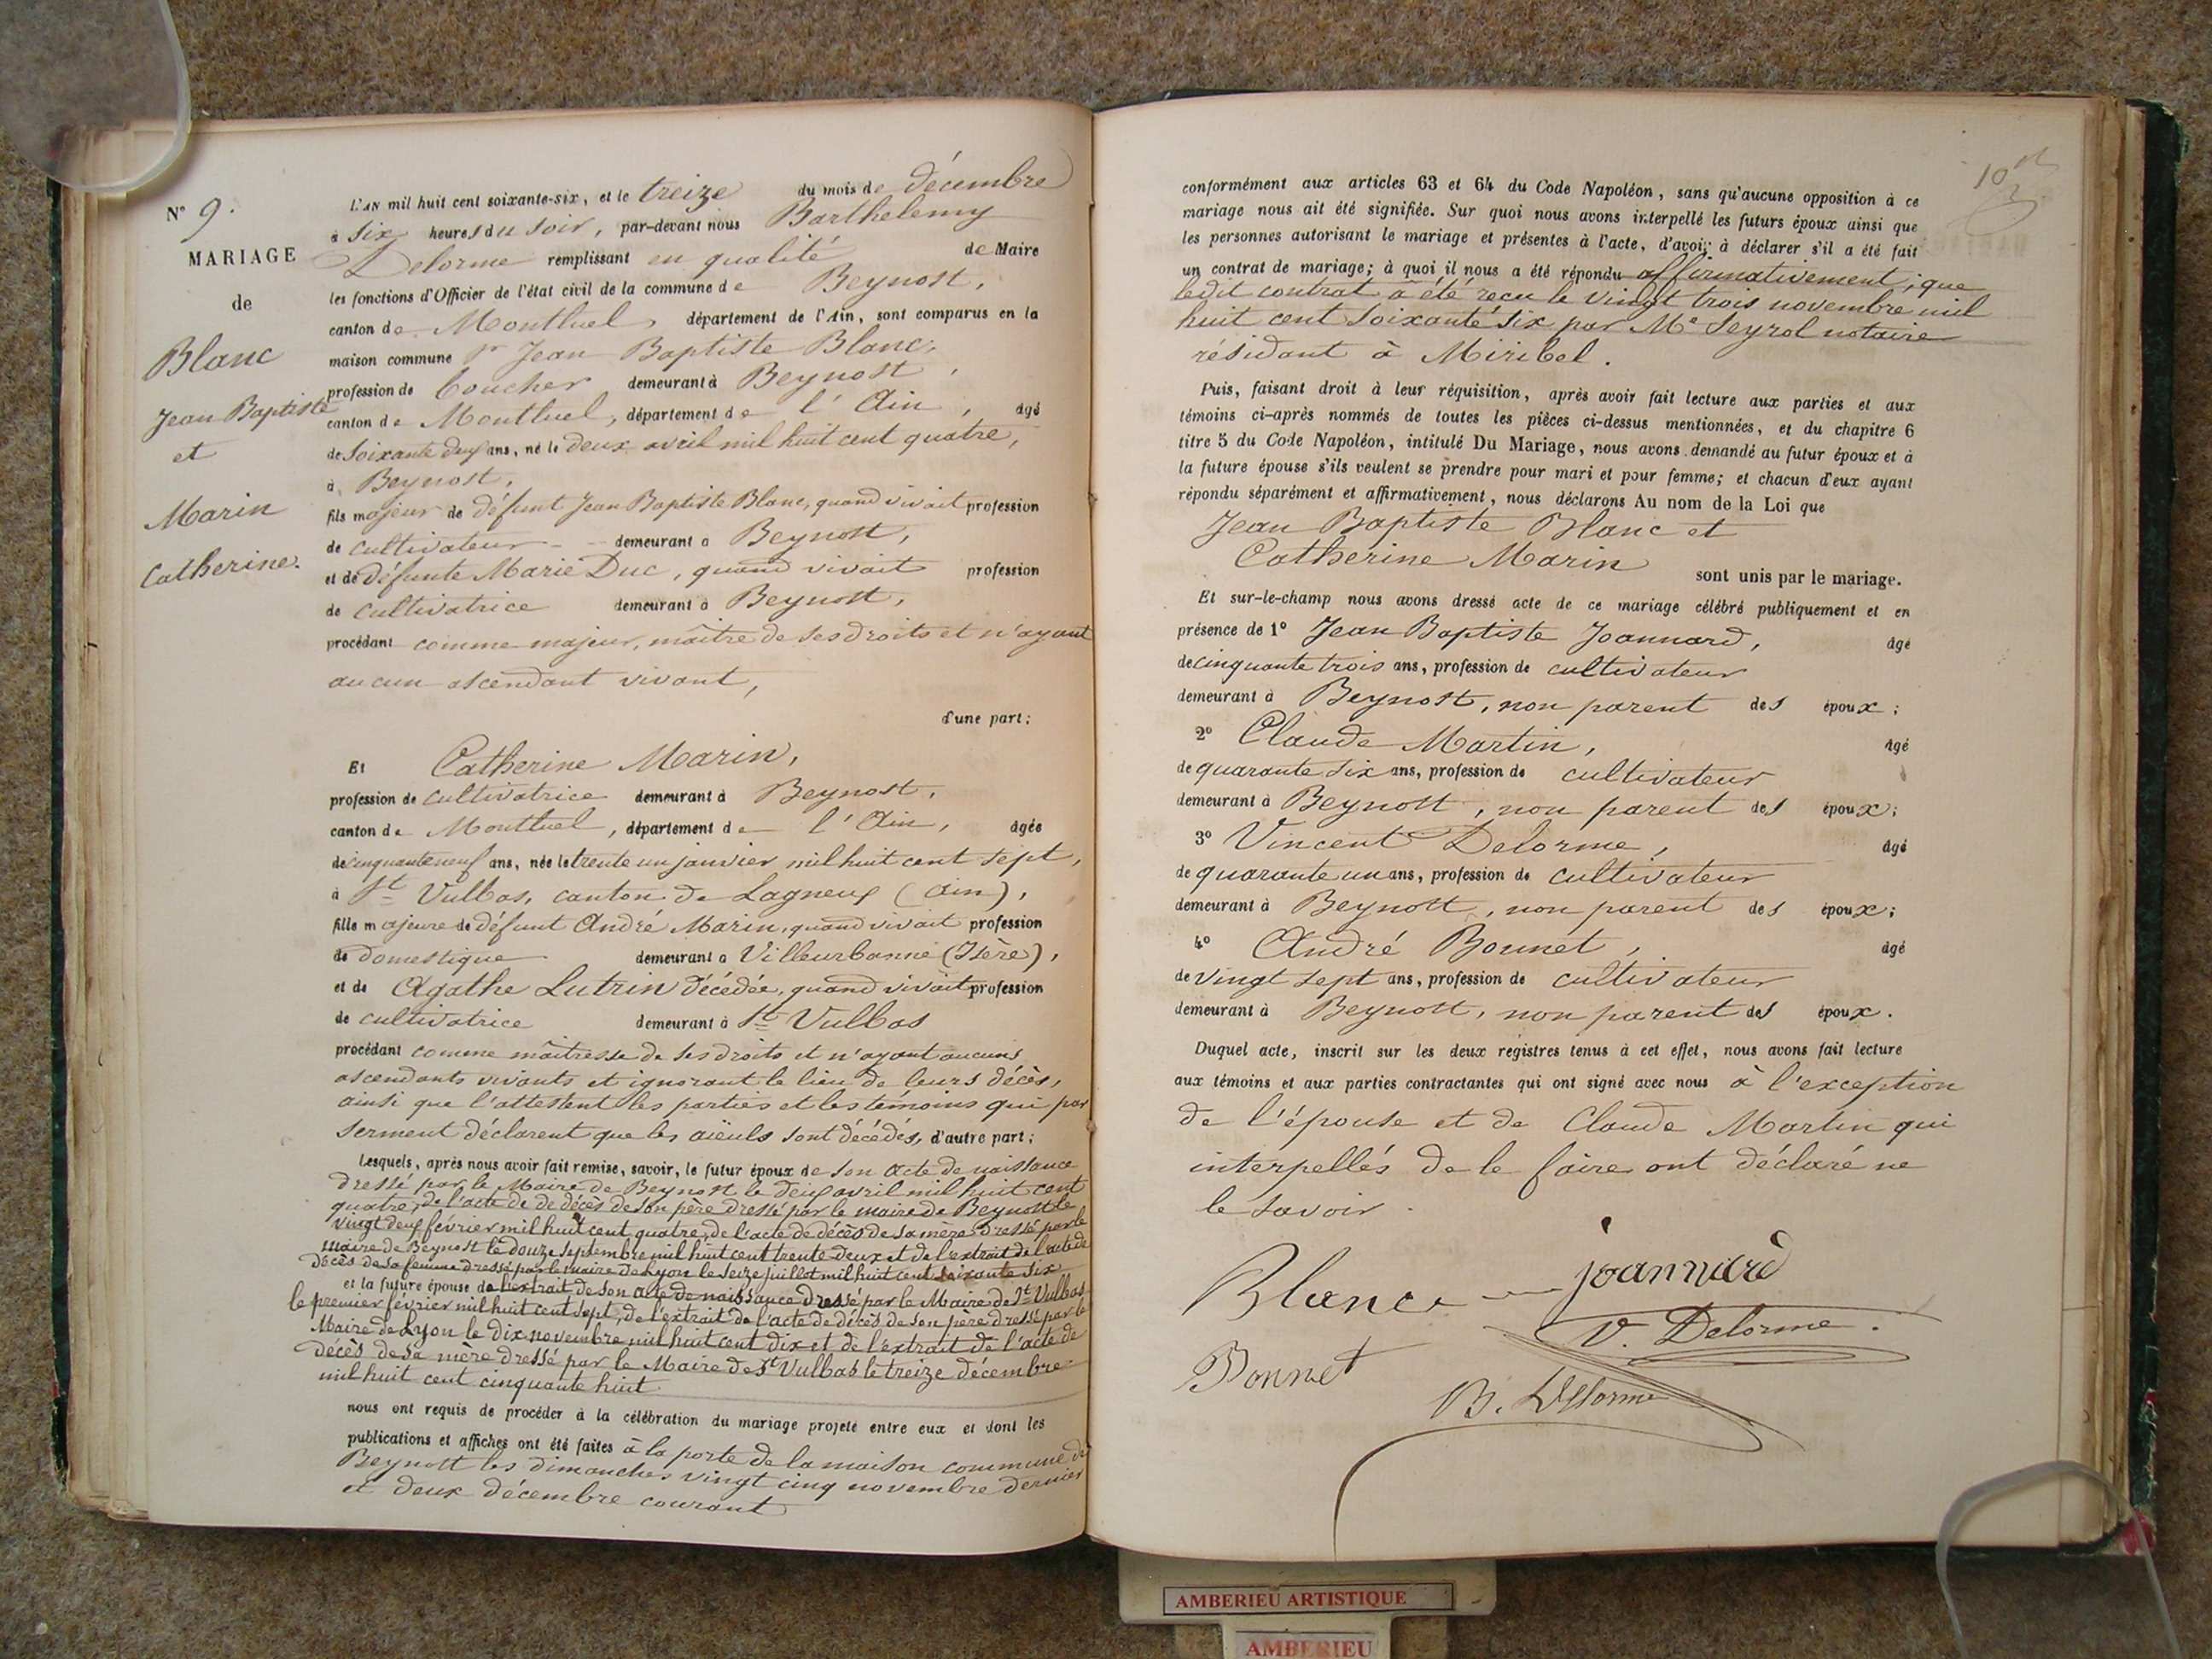 N° 9.
MARIAGE
de
Blanc
Jean Baptiste
et
Marin
Catherine.
L'AN mil huit cent soixante-six, et le treize du mois de décembre
à six heures du soir, par-devant nous Barthelemy
Delorme remplissant en qualité de Maire
les fonctions d'Officier de l'état civil de la commune de Beynost,
canton de Montluel, département de l'Ain, sont comparus en la
maison commune Sr Jean Baptiste Blanc,
profession de boucher demeurant à Beynost,
canton de Montluel, département de l'Ain, âgé
de soixante deux ans, né le deux avril mil huit cent quatre,
à Beynost,
fils majeur de défunt Jean Baptiste Blanc, quand vivait profession
de cultivateur demeurant à Beynost,
et de défunte Marie Duc, quand vivait profession
de cultivatrice demeurant à Beynost,
procédant comme majeur, maître de ses droits et n'ayant
aucun ascendant vivant,
d'une part;
Et Catherine Marin,
profession de cultivatrice demeurant à Beynost,
canton de Montluel, département de l'Ain, âgée
de cinquante neuf ans, née le trente un janvier mil huit cent sept,
à St Vulbas, canton de Lagneux (Ain),
fille majeure de défunt André Marin, quand vivait profession
de domestique demeurant à Villeurbanne (Isère),
et de Agathe Lutrin décédée, quand vivait profession
de cultivatrice demeurant à St Vulbas
procédant comme maîtresse de ses droits et n'ayant aucuns
ascendants vivants et ignorant le lieu de leurs décès,
ainsi que l'attestent les parties et les témoins qui par
serment déclarent que les aïeuls sont décédés, d'autre part;
Lesquels, après nous avoir fait remise, savoir, le futur époux de son acte de naissance
dressé par le Maire de Beynost le deux avril mil huit cent
quatre, de l'acte de de décès de son père dressé par le maire de Beynost le
vingt deux février mil huit cent quatre, de l'acte de décès de sa mère dressé par le
maire de Beynost le douze septembre mil huit cent trente deux et de l'extrait de l'acte de
décès de sa femme dressé par le maire de Lyon le seize juillet mil huit cent soixante six
et la future épouse de l'extrait de son acte de naissance dressé par le Maire de St Vulbas
le premier février mil huit cent sept, de l'extrait de l'acte de décès de son père dressé par le
Maire de Lyon le dix novembre mil huit cent dix et de l'extrait de l'acte de
décès de sa mère dressé par le Maire de St Vulbas le treize décembre
mil huit cent cinquante huit
nous ont requis de procéder à la célébration du mariage projeté entre eux et dont les
publications et affiches ont été faites à la porte de la maison commune de
Beynost les dimanches vingt cinq novembre dernier
et deux décembre courant
conformément aux articles 63 et 64 du Code Napoléon, sans qu'aucune opposition à ce
mariage nous ait été signifiée. Sur quoi nous avons interpellé les futurs époux ainsi que
les personnes autorisant le mariage et présentes à l'acte, d'avoir à déclarer s'il a été fait
un contrat de mariage; à quoi il nous a été répondu affirmativement; que
ledit contrat a été reçu le vingt trois novembre mil
huit cent soixante six par Me Seyrol notaire
résidant à Miribel.
Puis, faisant droit à leur réquisition, après avoir fait lecture aux parties et aux
témoins ci-après nommés de toutes les pièces ci-dessus mentionnées, et du chapitre 6
titre 5 du Code Napoléon, intitulé Du Mariage, nous avons demandé au futur époux et à
la future épouse s'ils veulent se prendre pour mari et pour femme; et chacun d'eux ayant
répondu séparément et affirmativement, nous déclarons Au nom de la Loi que
Jean Baptiste Blanc et
Catherine Marin
sont unis par le mariage.
Et sur-le-champ nous avons dressé acte de ce mariage célébré publiquement et en
présence de 1° Jean Baptiste Joannard, âgé
de cinquante trois ans, profession de cultivateur
demeurant à Beynost, non parent des époux;
2° Claude Martin, âgé
de quarante six ans, profession de cultivateur
demeurant à Beynost, non parent des époux;
3° Vincent Delorme, âgé
de quarante un ans, profession de cultivateur
demeurant à Beynost, non parent des époux;
4° André Bonnet, âgé
de vingt sept ans, profession de cultivateur
demeurant à Beynost, non parent des époux.
Duquel acte, inscrit sur les deux registres tenus à cet effet, nous avons fait lecture
aux témoins et aux parties contractantes qui ont signé avec nous à l'exception
de l'épouse et de Claude Martin qui
interpellés de le faire ont déclaré ne
le savoir.
Blanc joannard
V. Delorme.
Bonnet
B. Delorme
AMBERIEU ARTISTIQUE
AMBERIEU